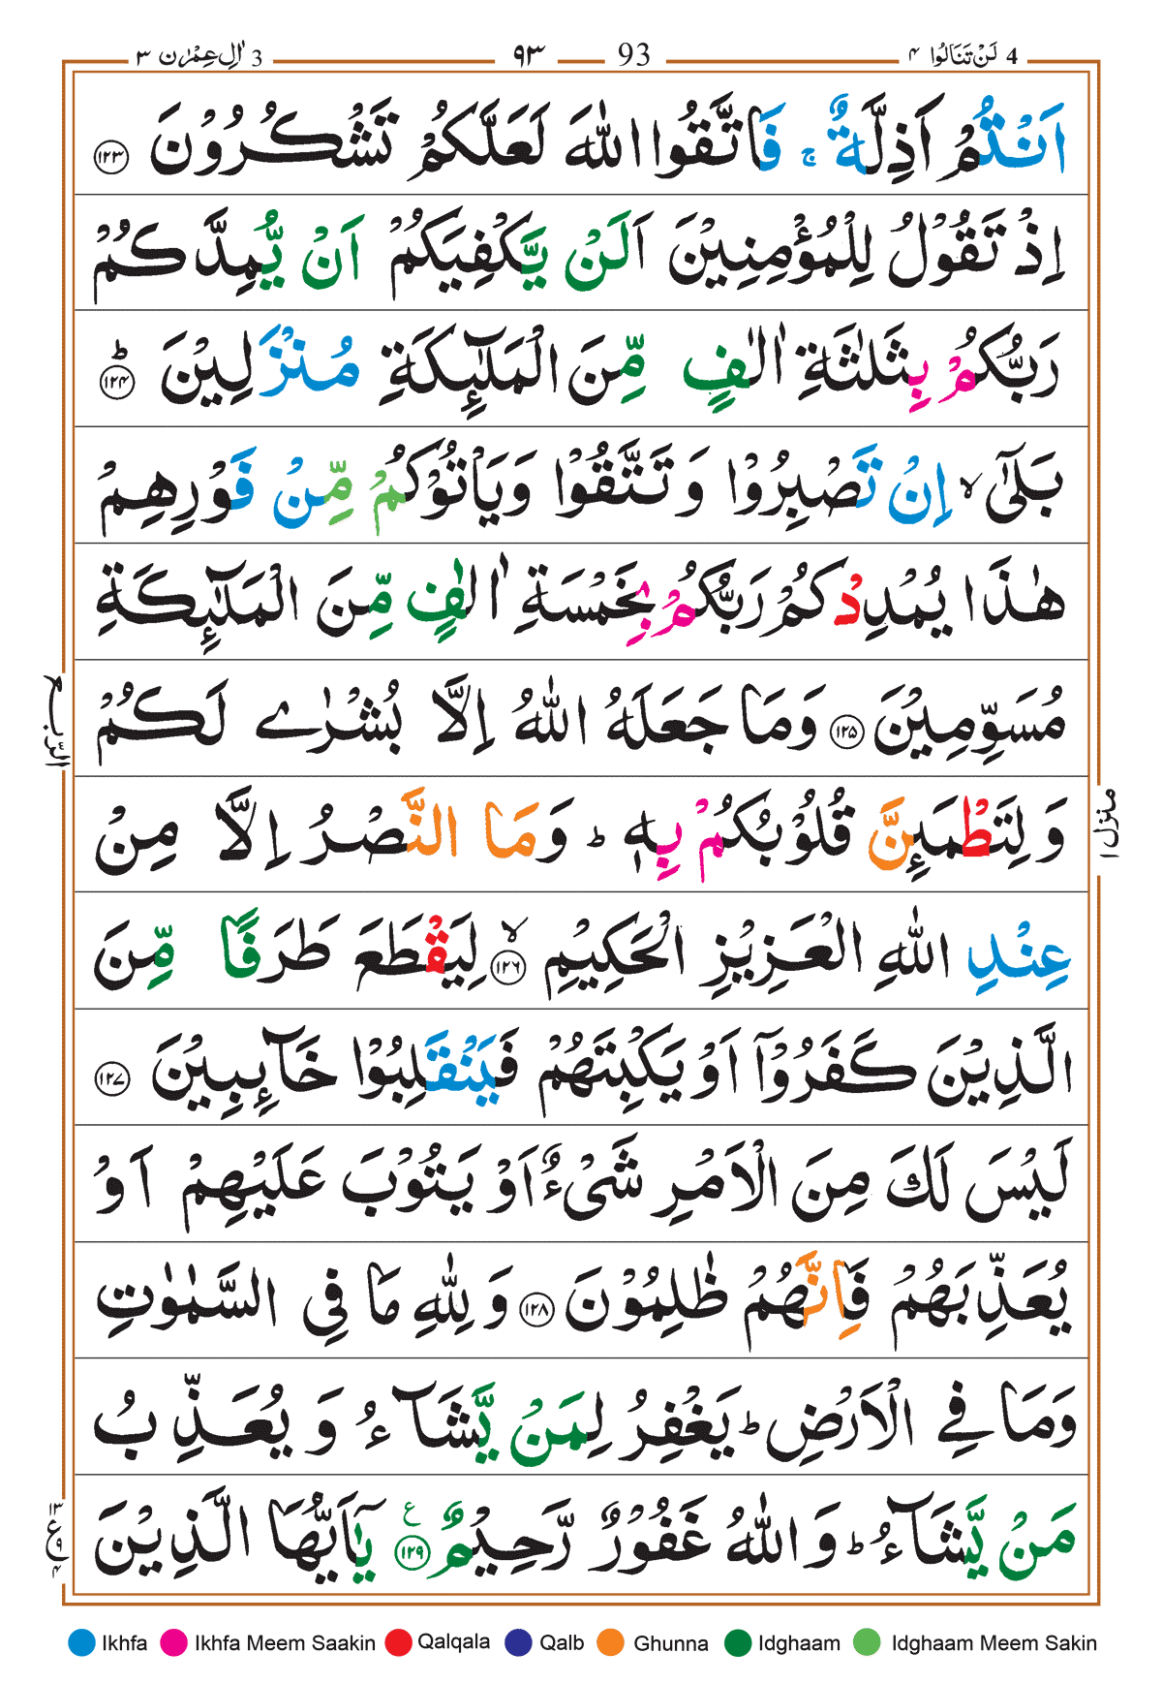 اٰلِ عِمْرٰن ٣ 3 ٩٣ 93 لَنْ تَنَالُوا ٤ 4
اَنْتُمْ اَذِلَّةٌ ۚ فَاتَّقُوا اللّٰهَ لَعَلَّكُمْ تَشْكُرُوْنَ ﴿۱۲۳﴾
اِذْ تَقُوْلُ لِلْمُؤْمِنِيْنَ اَلَنْ يَّكْفِيَكُمْ اَنْ يُّمِدَّكُمْ
رَبُّكُمْ بِثَلٰثَةِ اٰلٰفٍ مِّنَ الْمَلٰٓئِكَةِ مُنْزَلِيْنَ ؕ ﴿۱۲۴﴾
بَلٰٓى ۙ اِنْ تَصْبِرُوْا وَ تَتَّقُوْا وَيَاْتُوْكُمْ مِّنْ فَوْرِهِمْ
هٰذَا يُمْدِدْكُمْ رَبُّكُمْ بِخَمْسَةِ اٰلٰفٍ مِّنَ الْمَلٰٓئِكَةِ
مُسَوِّمِيْنَ ﴿۱۲۵﴾ وَمَا جَعَلَهُ اللّٰهُ اِلَّا بُشْرٰى لَكُمْ
الرّبع
وَ لِتَطْمَئِنَّ قُلُوْبُكُمْ بِهٖ ؕ وَمَا النَّصْرُ اِلَّا مِنْ
منزل ۱
عِنْدِ اللّٰهِ الْعَزِيْزِ الْحَكِيْمِ ۙ ﴿۱۲۶﴾ لِيَقْطَعَ طَرَفًا مِّنَ
الَّذِيْنَ كَفَرُوْٓا اَوْ يَكْبِتَهُمْ فَيَنْقَلِبُوْا خَآئِبِيْنَ ﴿۱۲۷﴾
لَيْسَ لَكَ مِنَ الْاَمْرِ شَىْءٌ اَوْ يَتُوْبَ عَلَيْهِمْ اَوْ
يُعَذِّبَهُمْ فَاِنَّهُمْ ظٰلِمُوْنَ ﴿۱۲۸﴾ وَ لِلّٰهِ مَا فِى السَّمٰوٰتِ
وَمَا فِى الْاَرْضِ ؕ يَغْفِرُ لِمَنْ يَّشَآءُ وَ يُعَذِّبُ
مَنْ يَّشَآءُ ؕ وَ اللّٰهُ غَفُوْرٌ رَّحِيْمٌ ﴿۱۲۹﴾ ع يٰٓاَيُّهَا الَّذِيْنَ
۱۳ ع ۹ ۴
Ikhfa Ikhfa Meem Saakin Qalqala Qalb Ghunna Idghaam Idghaam Meem Sakin